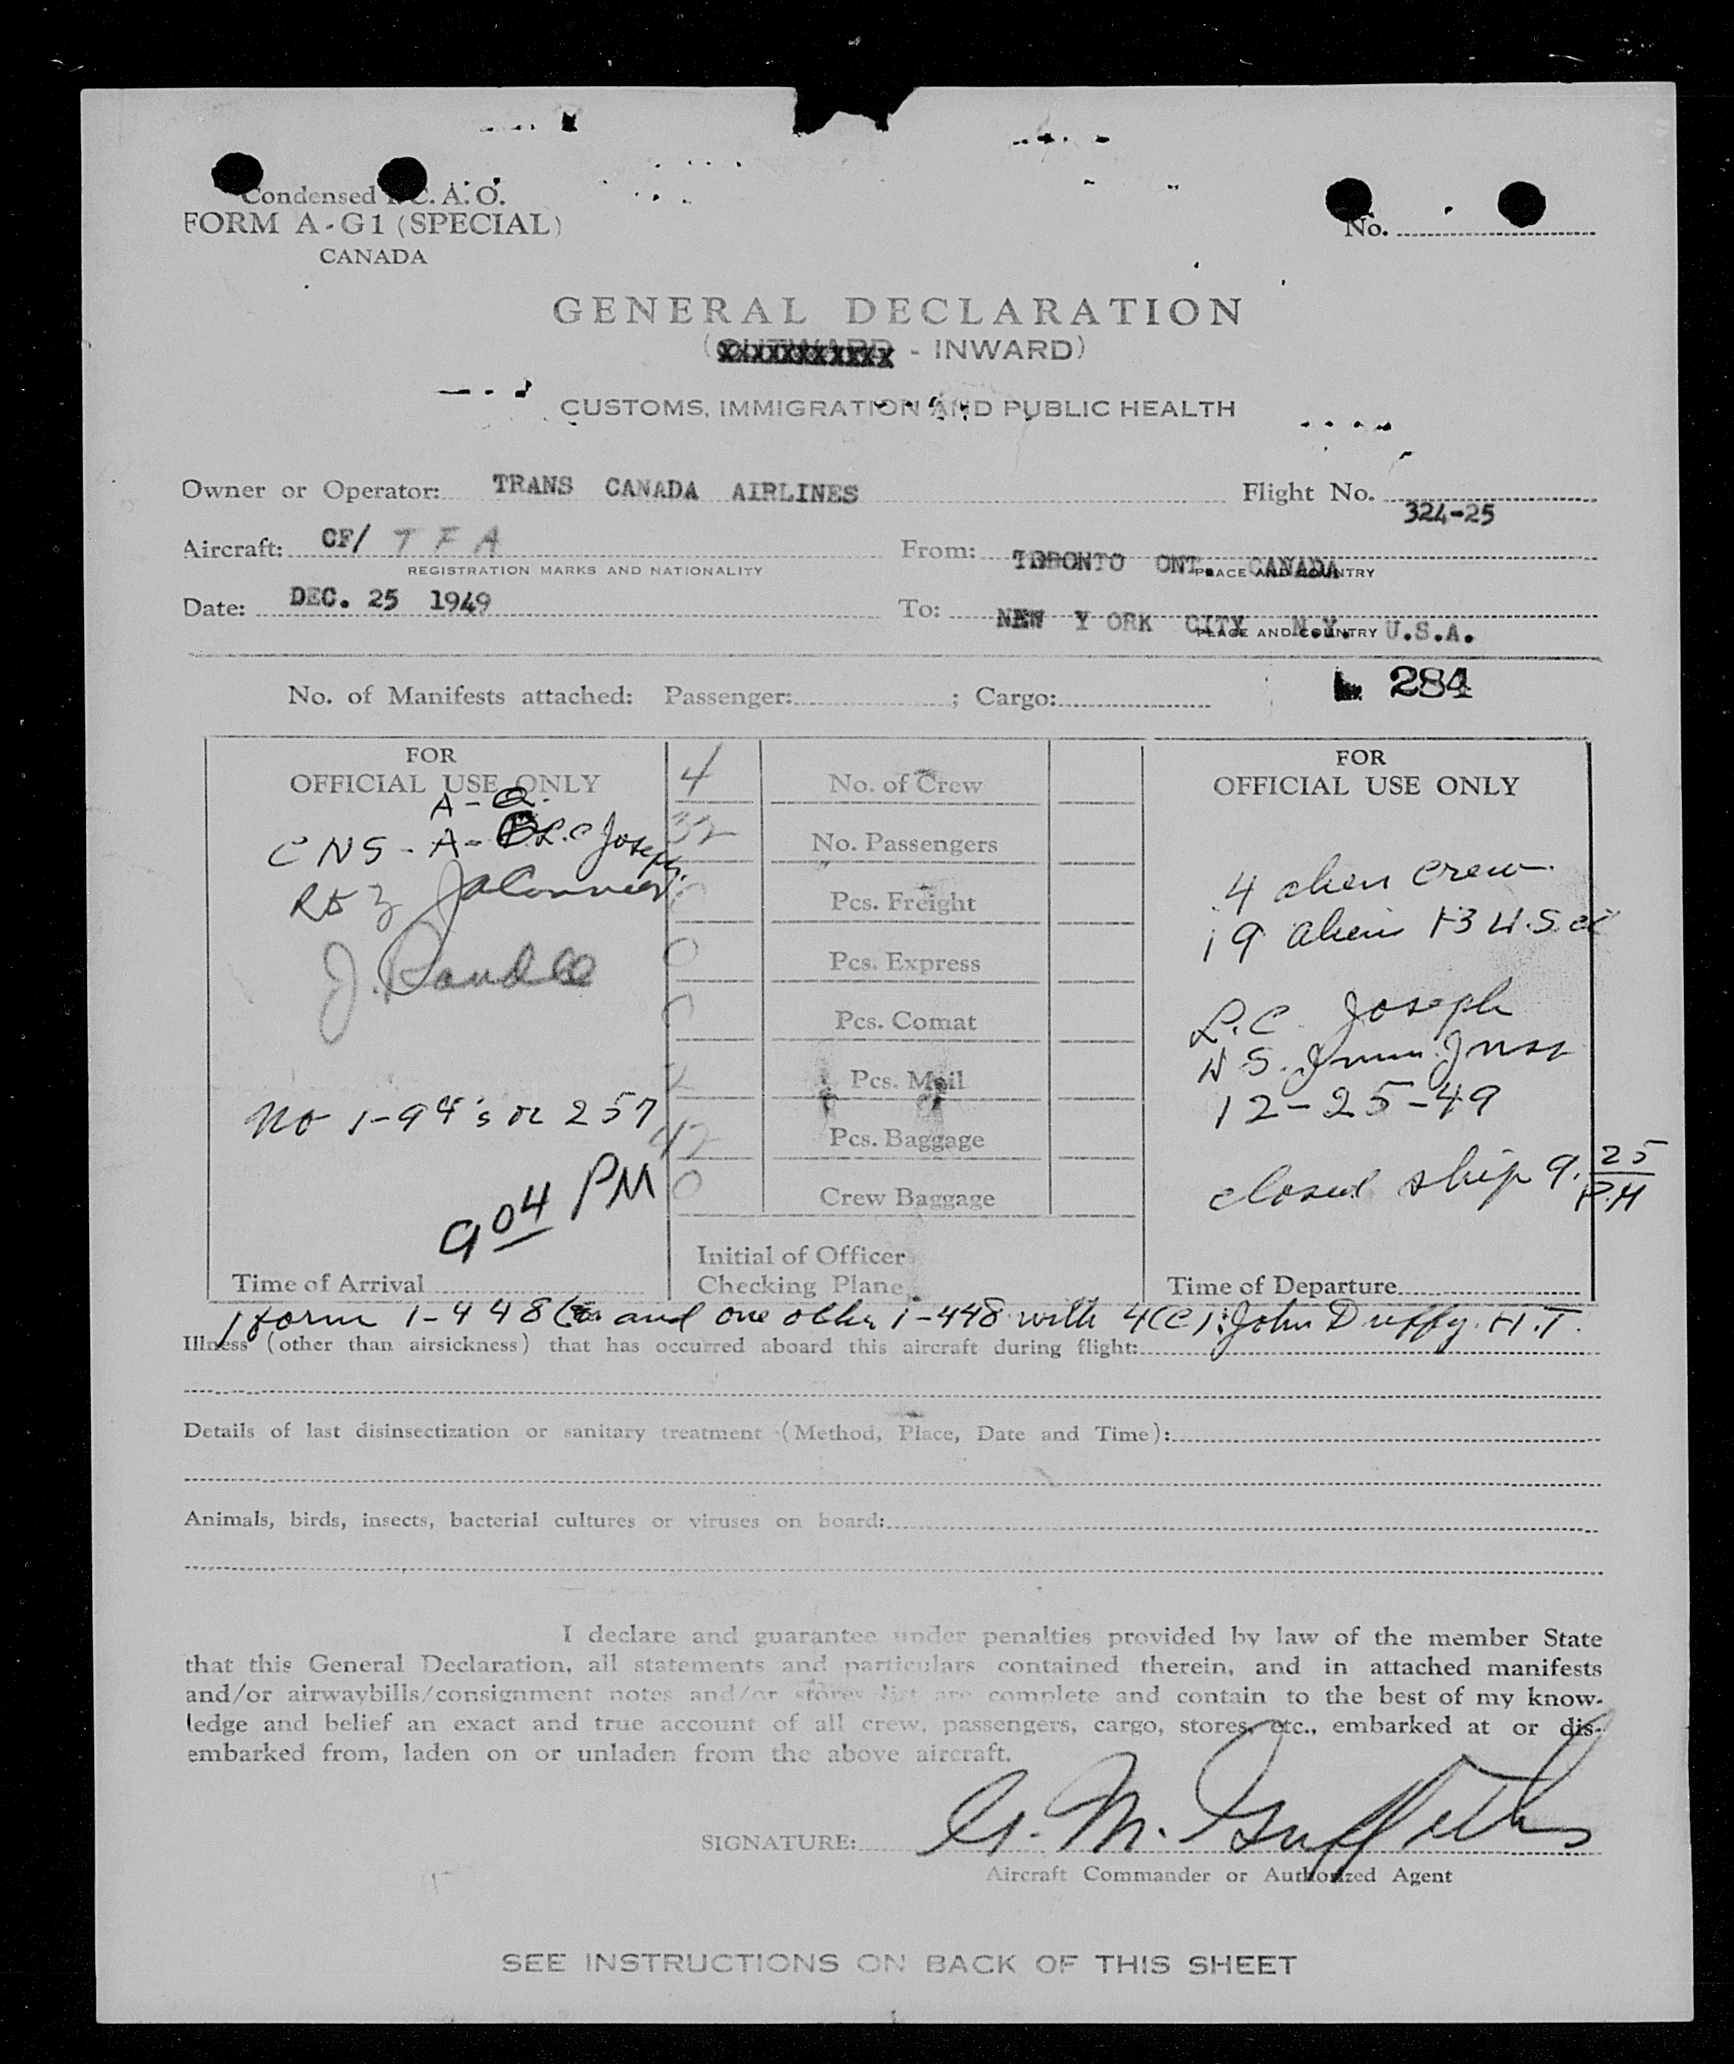 Condensed I. C. A. O.
FORM A-G1 (SPECIAL)
CANADA
No.
GENERAL DECLARATION
(OUTWARD - INWARD)
CUSTOMS, IMMIGRATION AND PUBLIC HEALTH
Owner or Operator: TRANS CANADA AIRLINES Flight No. 324-25
Aircraft: CF/ T F A From: TORONTO ONT. CANADA
REGISTRATION MARKS AND NATIONALITY PLACE AND COUNTRY
Date: DEC. 25 1949 To: NEW Y ORK CITY N.Y. U.S.A.
PLACE AND COUNTRY
No. of Manifests attached: Passenger: ; Cargo: 284
FOR
OFFICIAL USE ONLY
A-Q.
CNS - A- L.C Joseph
J. Randle
No 1-94's or 257
904 PM
Time of Arrival
4 No. of Crew
32 No. Passengers
0 Pcs. Freight
0 Pcs. Express
0 Pcs. Comat
2 Pcs. Mail
42 Pcs. Baggage
0 Crew Baggage
Initial of Officer
Checking Plane
FOR
OFFICIAL USE ONLY
4 alien crew
19 aliens 13 U.S.
L.C. Joseph
U S. Imm. Insp
12-25-49
closed ship 9.25
P.M
Time of Departure
1 form 1-448 and one other 1-448 with 4(C): John Duffy. H.T.
Illness (other than airsickness) that has occurred aboard this aircraft during flight:
Details of last disinsectization or sanitary treatment (Method, Place, Date and Time):
Animals, birds, insects, bacterial cultures or viruses on board:
I declare and guarantee under penalties provided by law of the member State
that this General Declaration, all statements and particulars contained therein, and in attached manifests
and/or airwaybills/consignment notes and/or stores list are complete and contain to the best of my know-
ledge and belief an exact and true account of all crew, passengers, cargo, stores, etc., embarked at or dis-
embarked from, laden on or unladen from the above aircraft.
SIGNATURE: G. M. Griffiths
Aircraft Commander or Authorized Agent
SEE INSTRUCTIONS ON BACK OF THIS SHEET